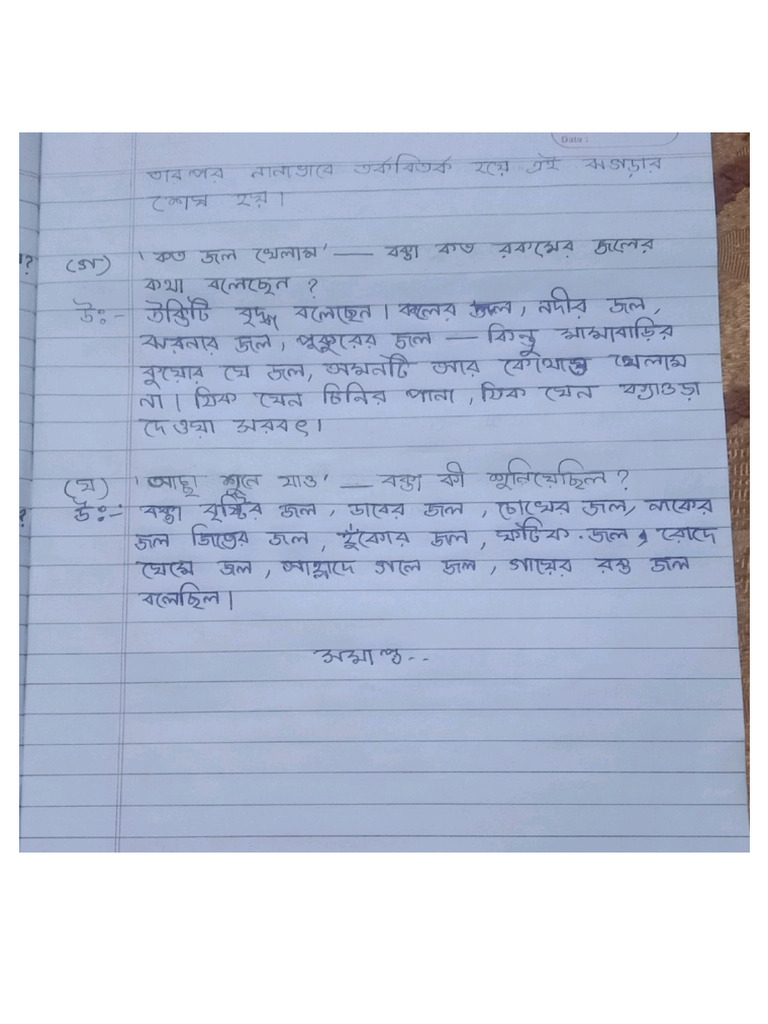 Date :
তারপর নানাভাবে তর্কবিতর্ক হয়ে এই ঝগড়ার
শেষ হয়।
?
(গ) 'কত জল খেলাম' — বক্তা কত রকমের জলের
কথা বলেছেন ?
উঃ- উক্তিটি বৃদ্ধ বলেছেন। কলের জল, নদীর জল,
ঝরনার জল, পুকুরের জল — কিন্তু মামাবাড়ির
কুয়োর যে জল, অমনটি আর কোথাও খেলাম
না। ঠিক যেন চিনির পানা, ঠিক যেন কেওড়া
দেওয়া সরবৎ।
(ঘ) 'আচ্ছা শুনে যাও' — বক্তা কী শুনিয়েছিল ?
?
উঃ- বক্তা বৃষ্টির জল, ডাবের জল, চোখের জল, নাকের
জল জিভের জল, হুঁকোর জল, ফটিক জল, রোদে
ঘেমে জল, আহ্লাদে গলে জল, গায়ের রক্ত জল
বলেছিল।
সমাপ্ত..